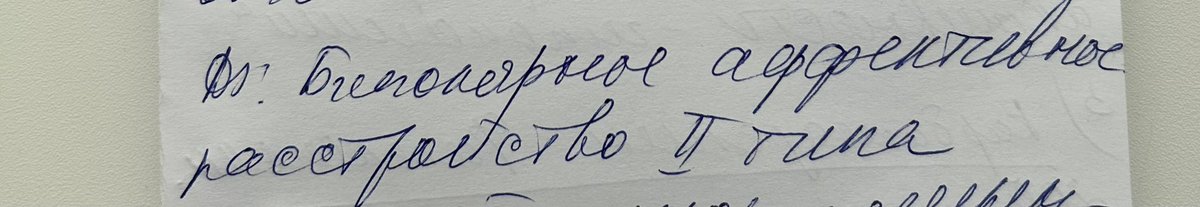 Ds: Биполярное аффективное
расстройство II типа